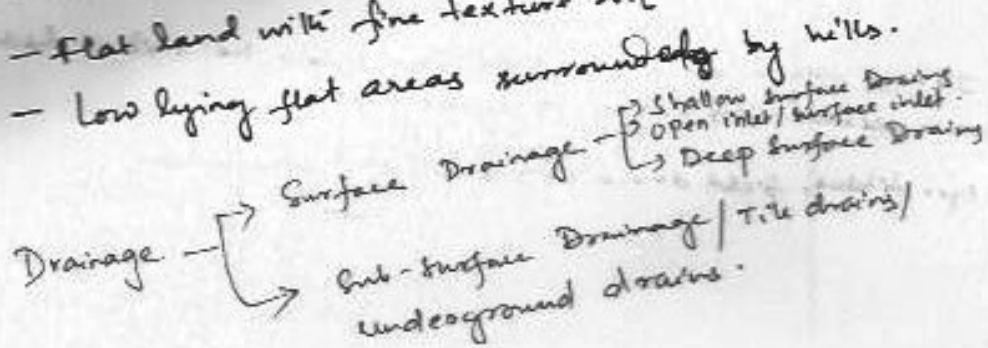 - Flat land with fine texture
- Low lying flat areas surrounded by hills.
Drainage → Surface Drainage → Shallow Surface Drains
→ Open inlet / Surface inlet.
→ Deep Surface Drains
→ Sub-Surface Drainage / Tile drains /
underground drains.